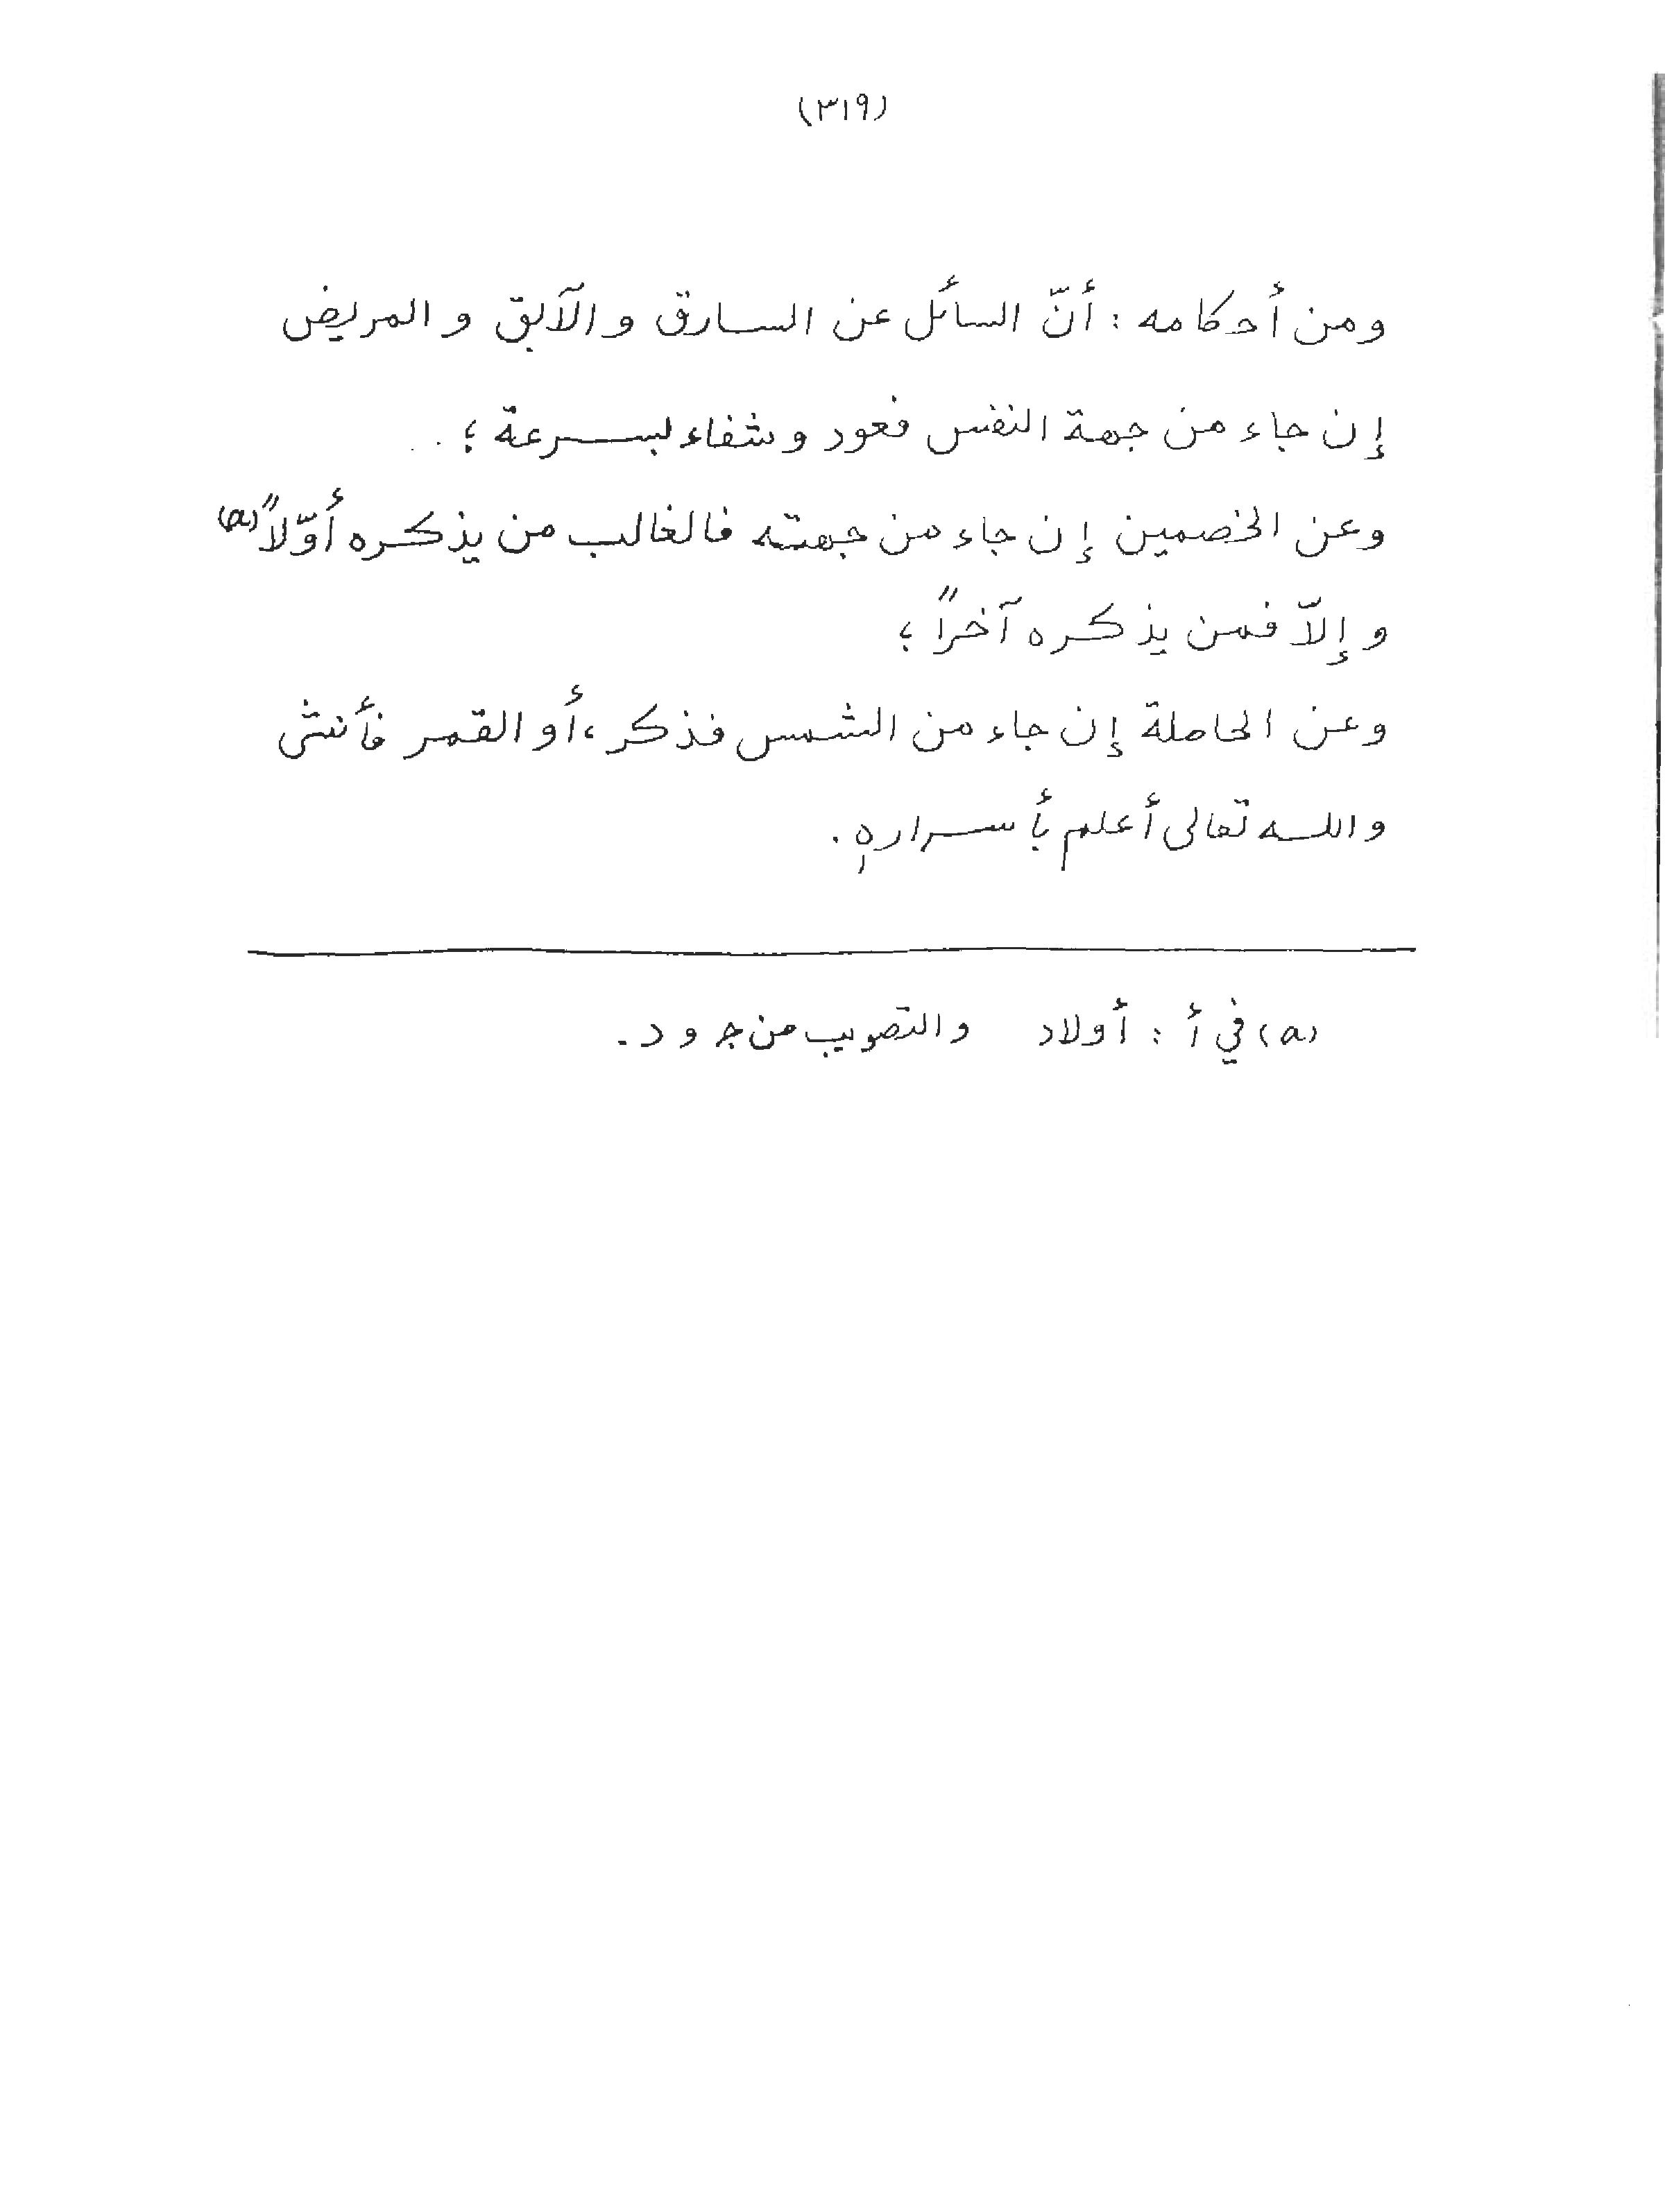 (٣١٩)
ومن أحكامه : أنّ السائل عن السارق والآبق والمريض
إن جاء من جهة النفس فعود وشفاء بسرعة ؛
وعن الخصمين إن جاء من جهته فالغالب من يذكره أوّلاً (a)
وإلاّ فمن يذكره آخراً ؛
وعن الحاملة إن جاء من الشمس فذكر ، أو القمر فأنثى
والله تعالى أعلم بأسرارهِ .
(a) في أ : أولاد والتصويب من جـ و د .